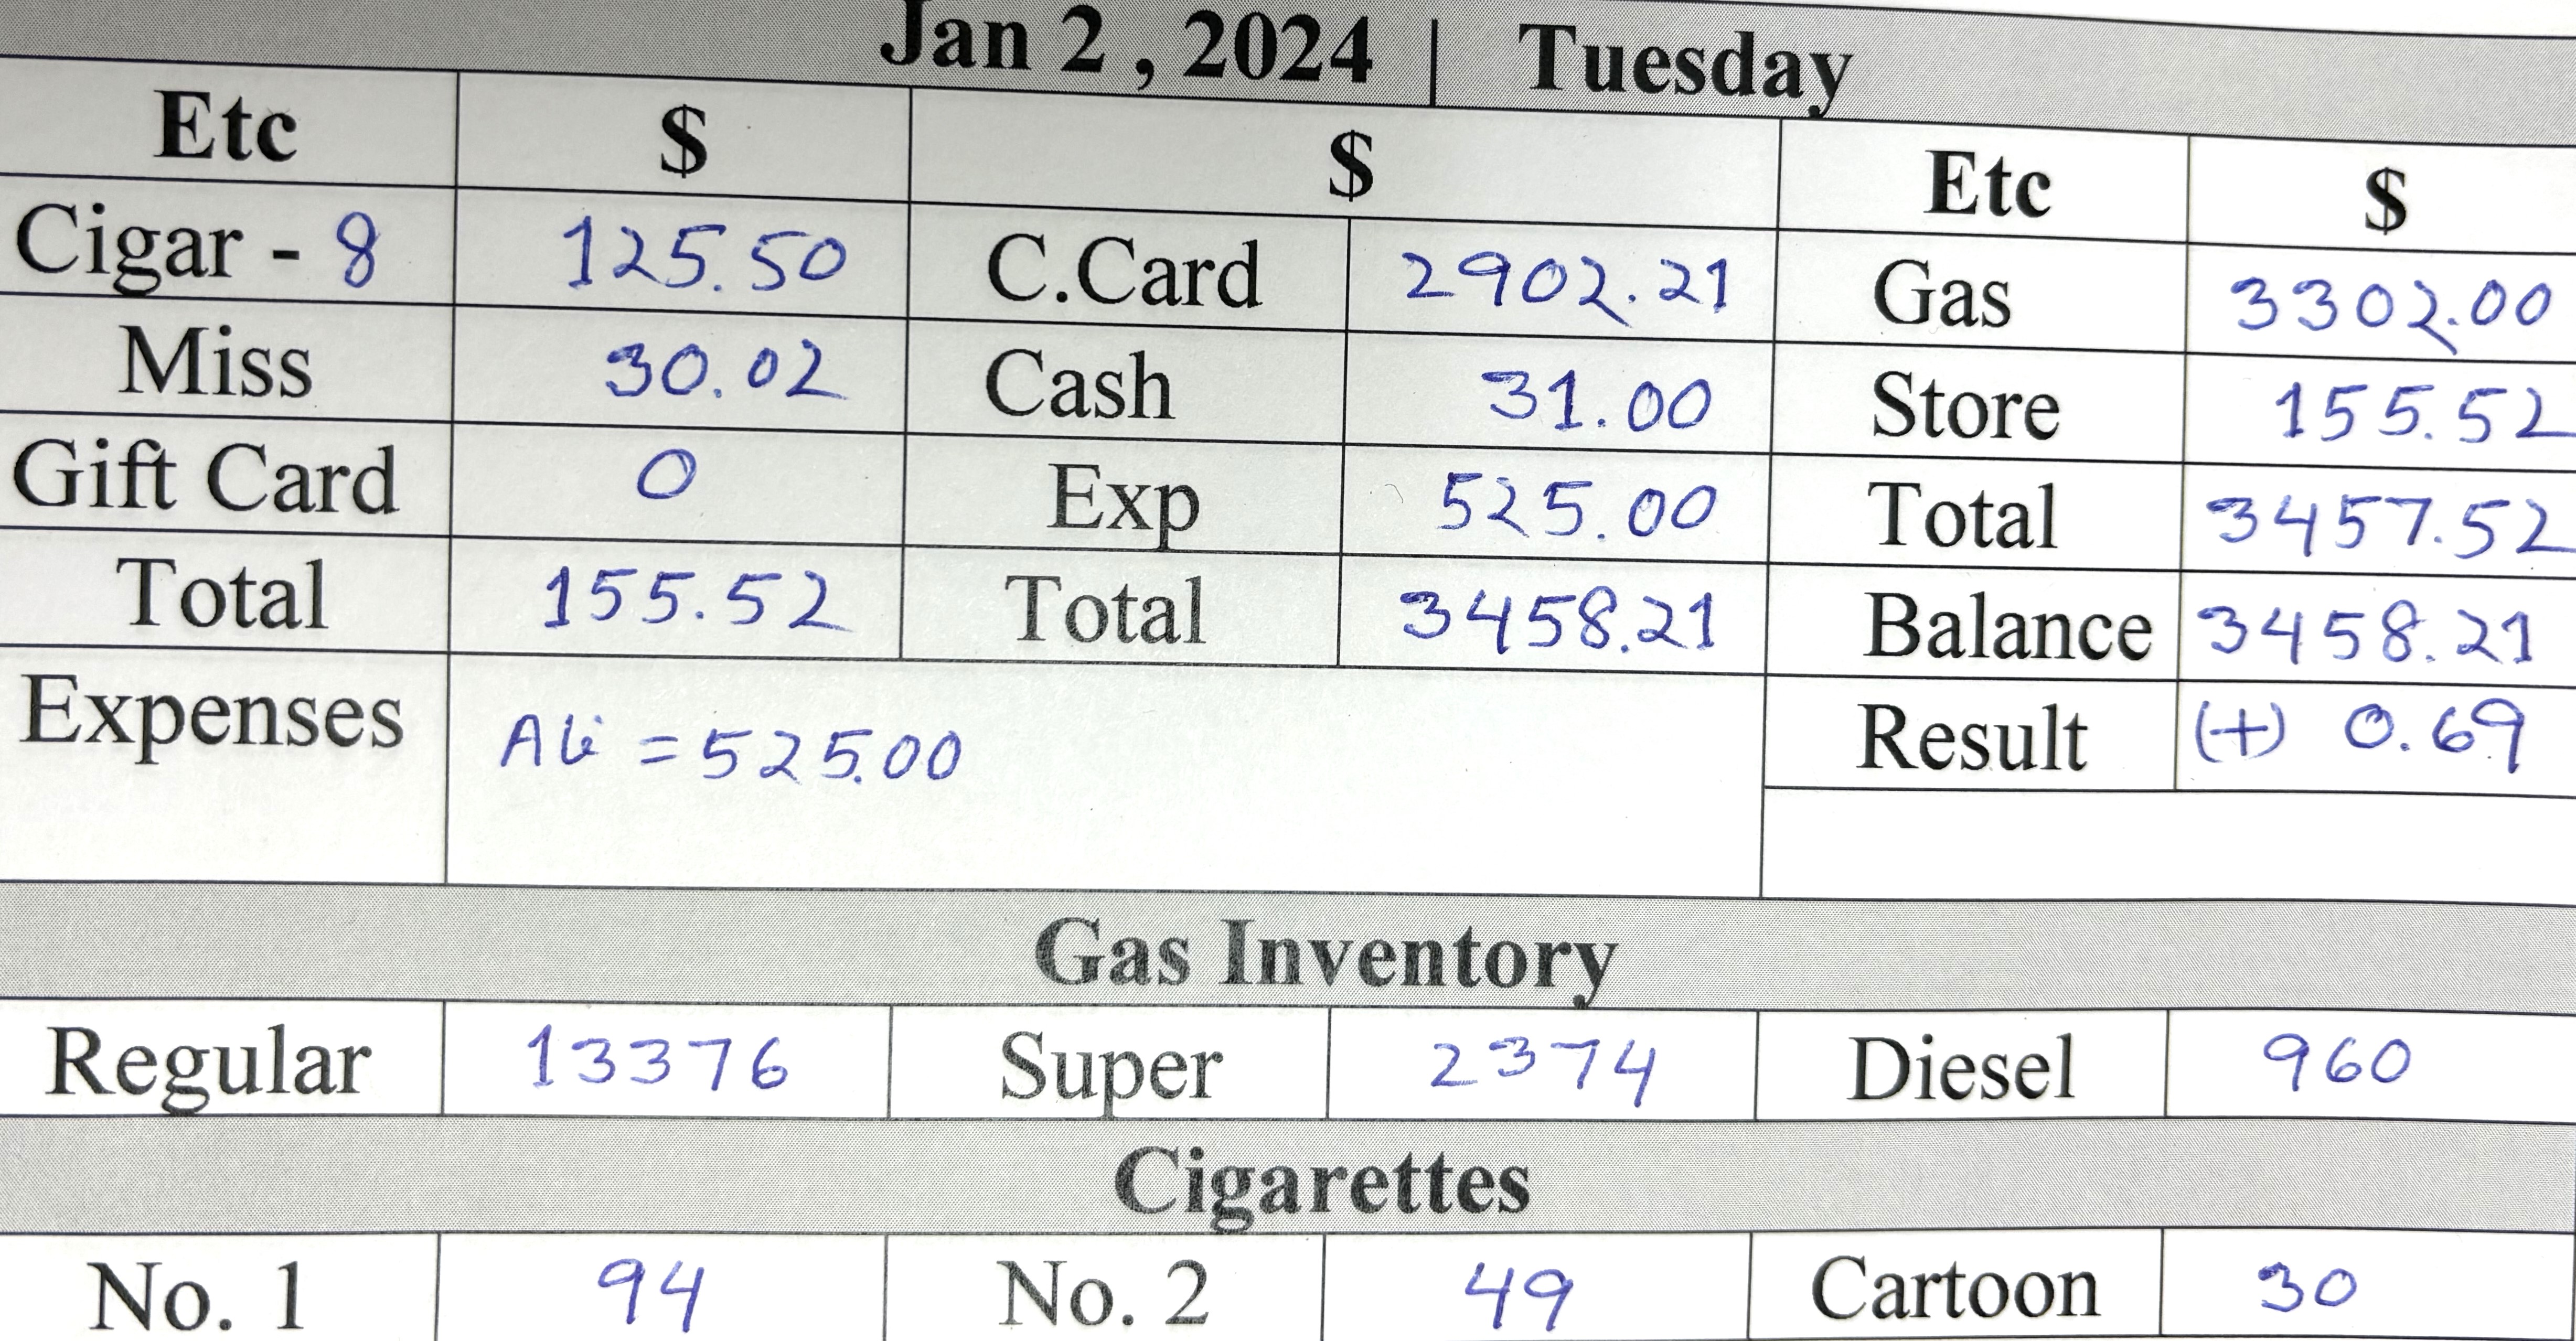 Jan 2 , 2024 | Tuesday
Etc $ $ Etc $
Cigar - 8 125.50 C.Card 2902.21 Gas 3302.00
Miss 30.02 Cash 31.00 Store 155.52
Gift Card 0 Exp 525.00 Total 3457.52
Total 155.52 Total 3458.21 Balance 3458.21
Expenses Ali = 525.00 Result (+) 0.69
Gas Inventory
Regular 13376 Super 2374 Diesel 960
Cigarettes
No. 1 94 No. 2 49 Cartoon 30